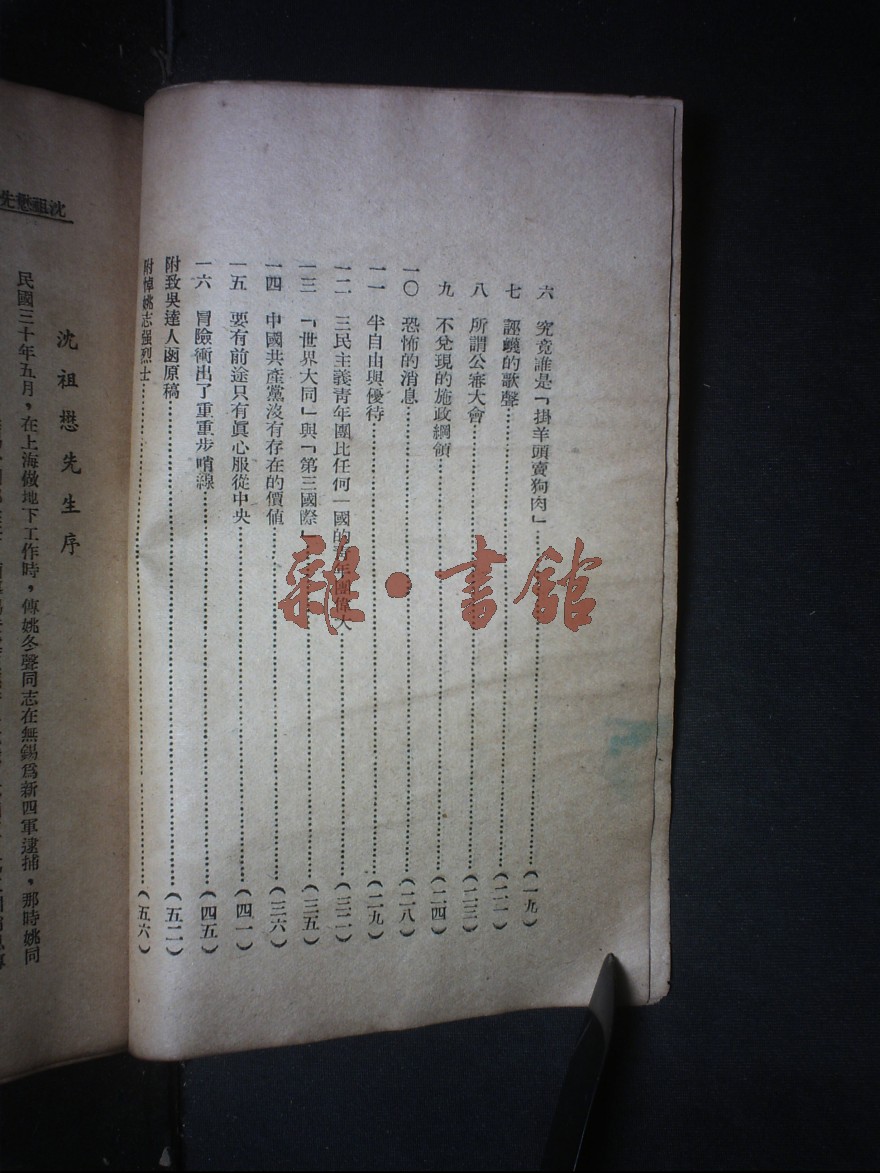 六　究竟誰是「掛羊頭賣狗肉」……(一九)
七　誣衊的歌聲……(二一)
八　所謂公審大會……(二三)
九　不兌現的施政綱領……(二四)
一〇　恐怖的消息……(二八)
一一　半自由與優待……(二九)
一二　三民主義青年團比任何一國的青年團偉大……(三二)
一三　「世界大同」與「第三國際」……(三五)
一四　中國共產黨沒有存在的價值……(三六)
一五　要有前途只有眞心服從中央……(四一)
一六　冒險衝出了重重步哨線……(四五)
附致吳達人函原稿……(五二)
附悼姚志强烈士……(五六)
雜·書館
沈祖懋先
沈祖懋先生序
民國三十年五月，在上海做地下工作時，傳姚冬聲同志在無錫爲新四軍逮捕，那時姚同